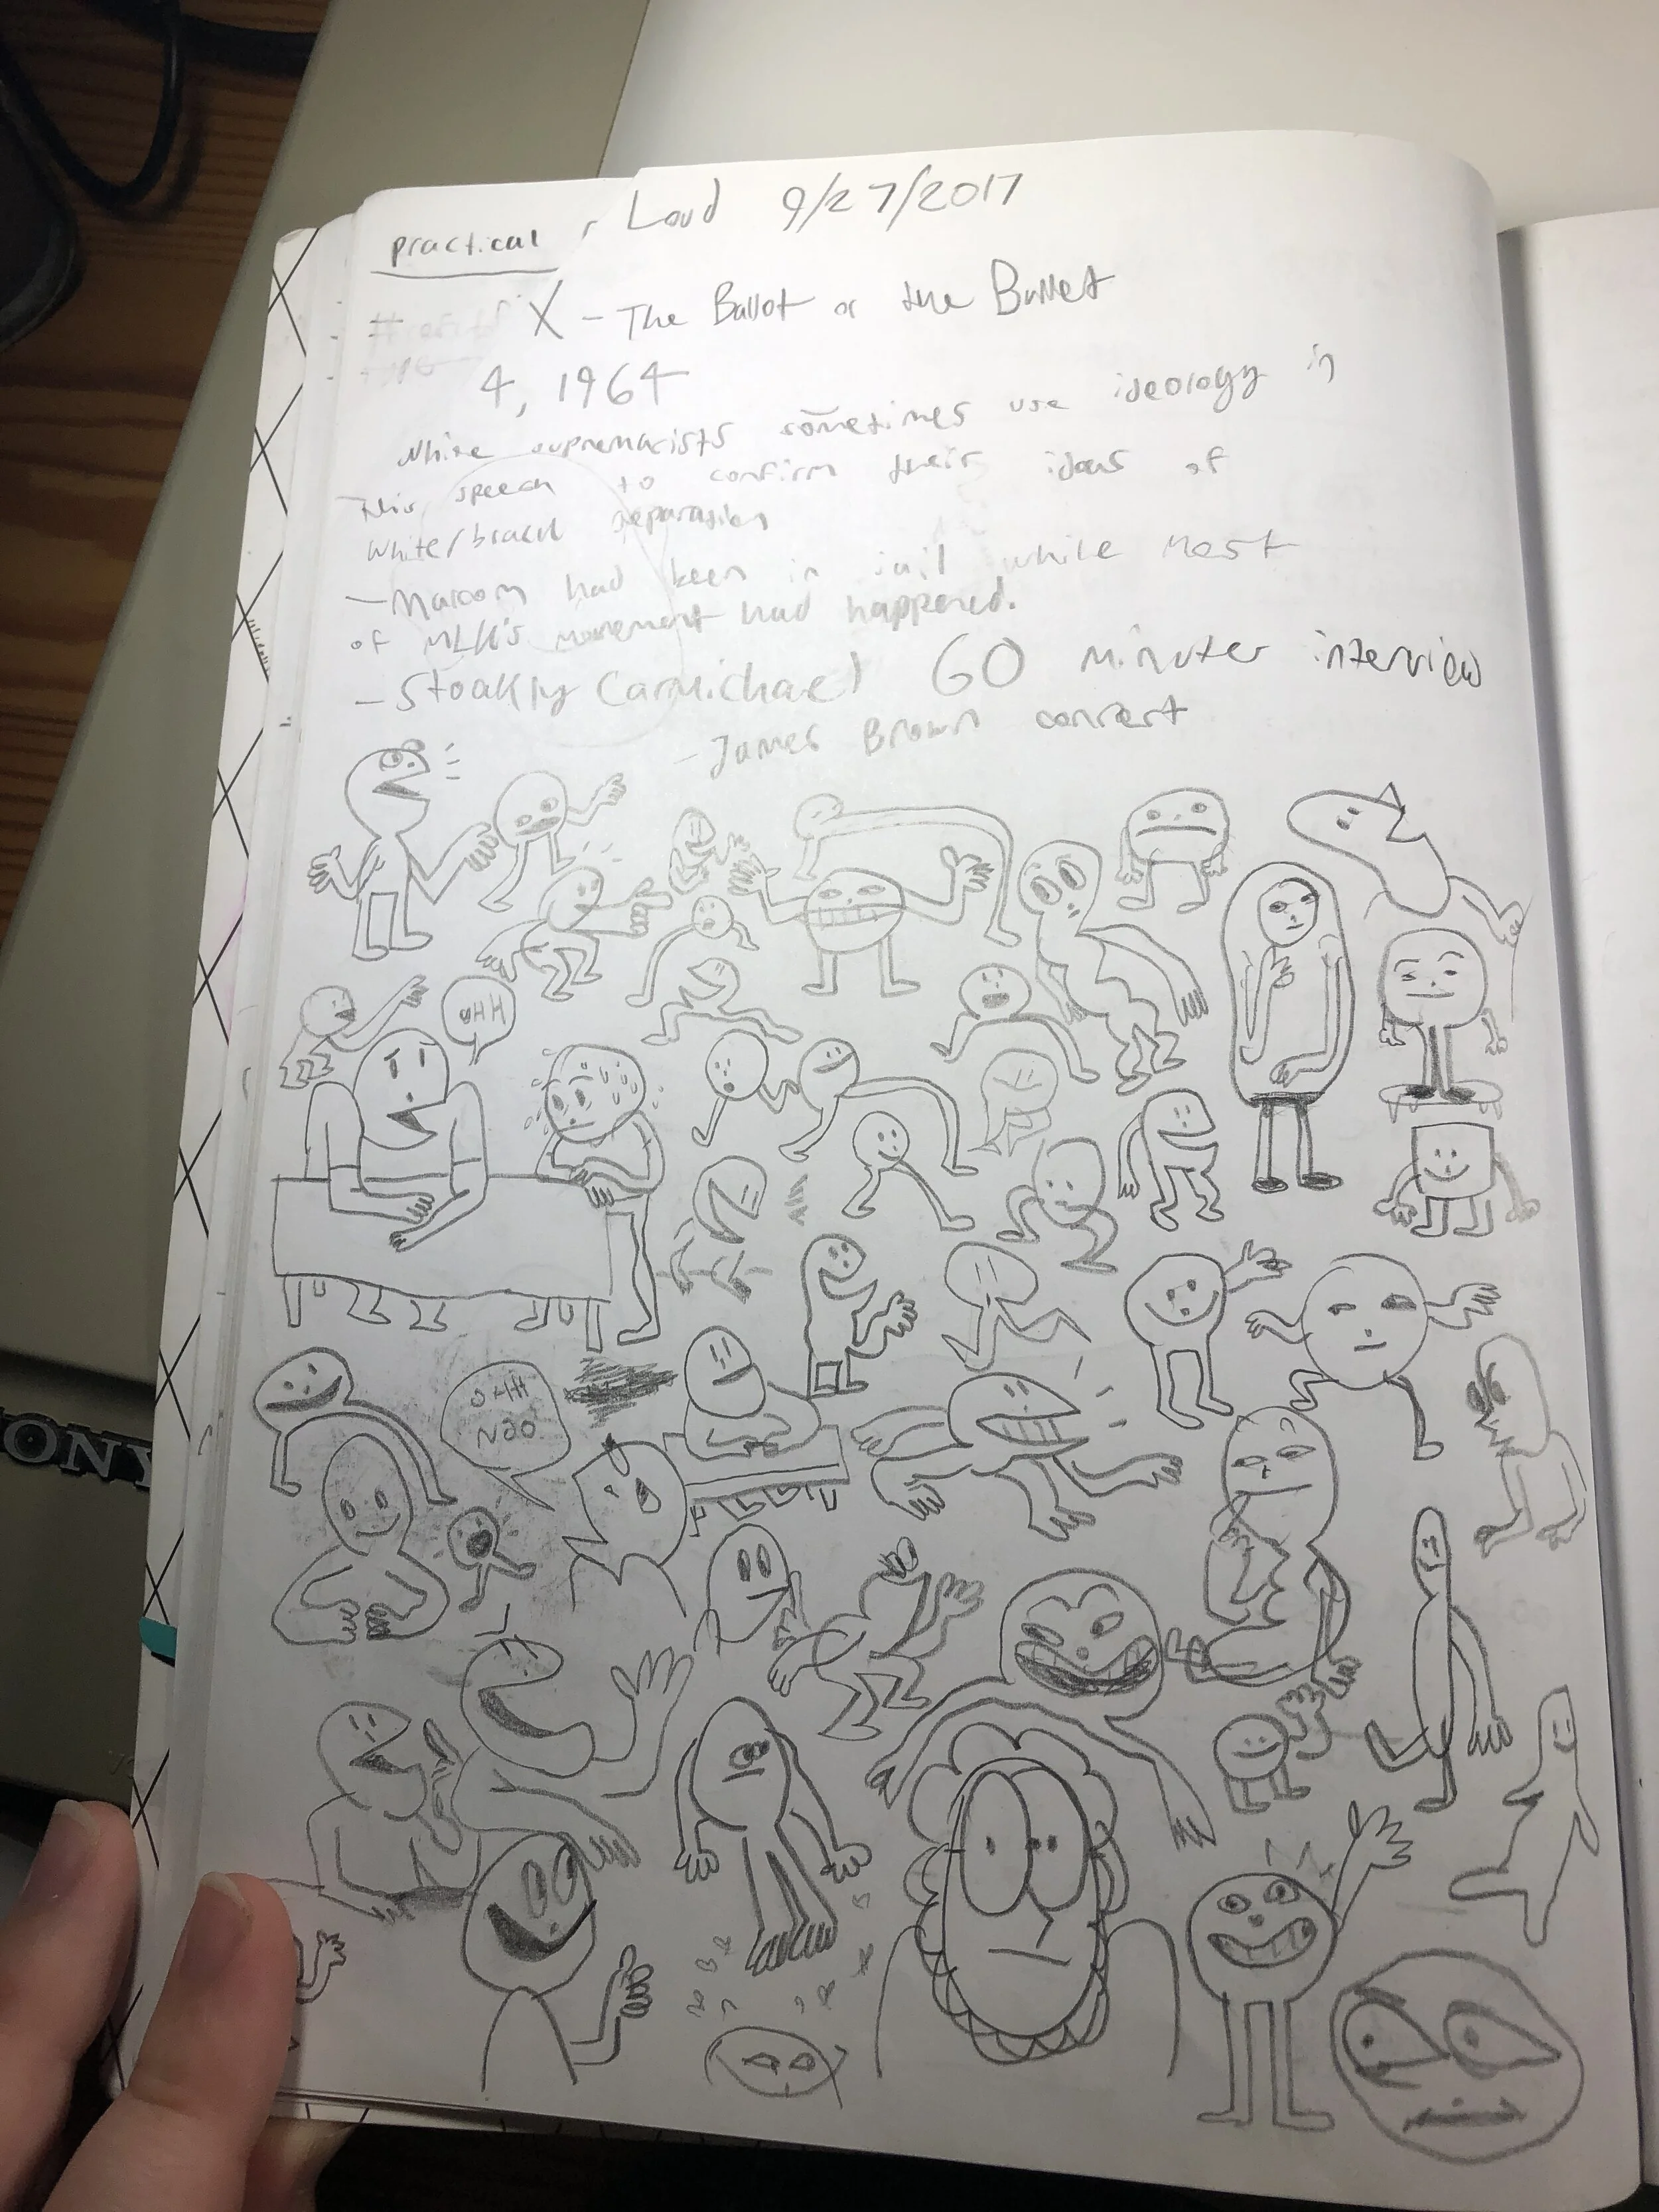 practical, Loud 9/27/2017
X - The Ballot or the Bullet
4, 1964
White supremacists sometimes use ideology in
this speech to confirm their ideas of
white/black separation
- Malcom had been in jail while most
of MLK's movement had happened.
- Stoakly Carmichael 60 minuter interview
- James Brown concert
UHH
OHH
NOO
SONY